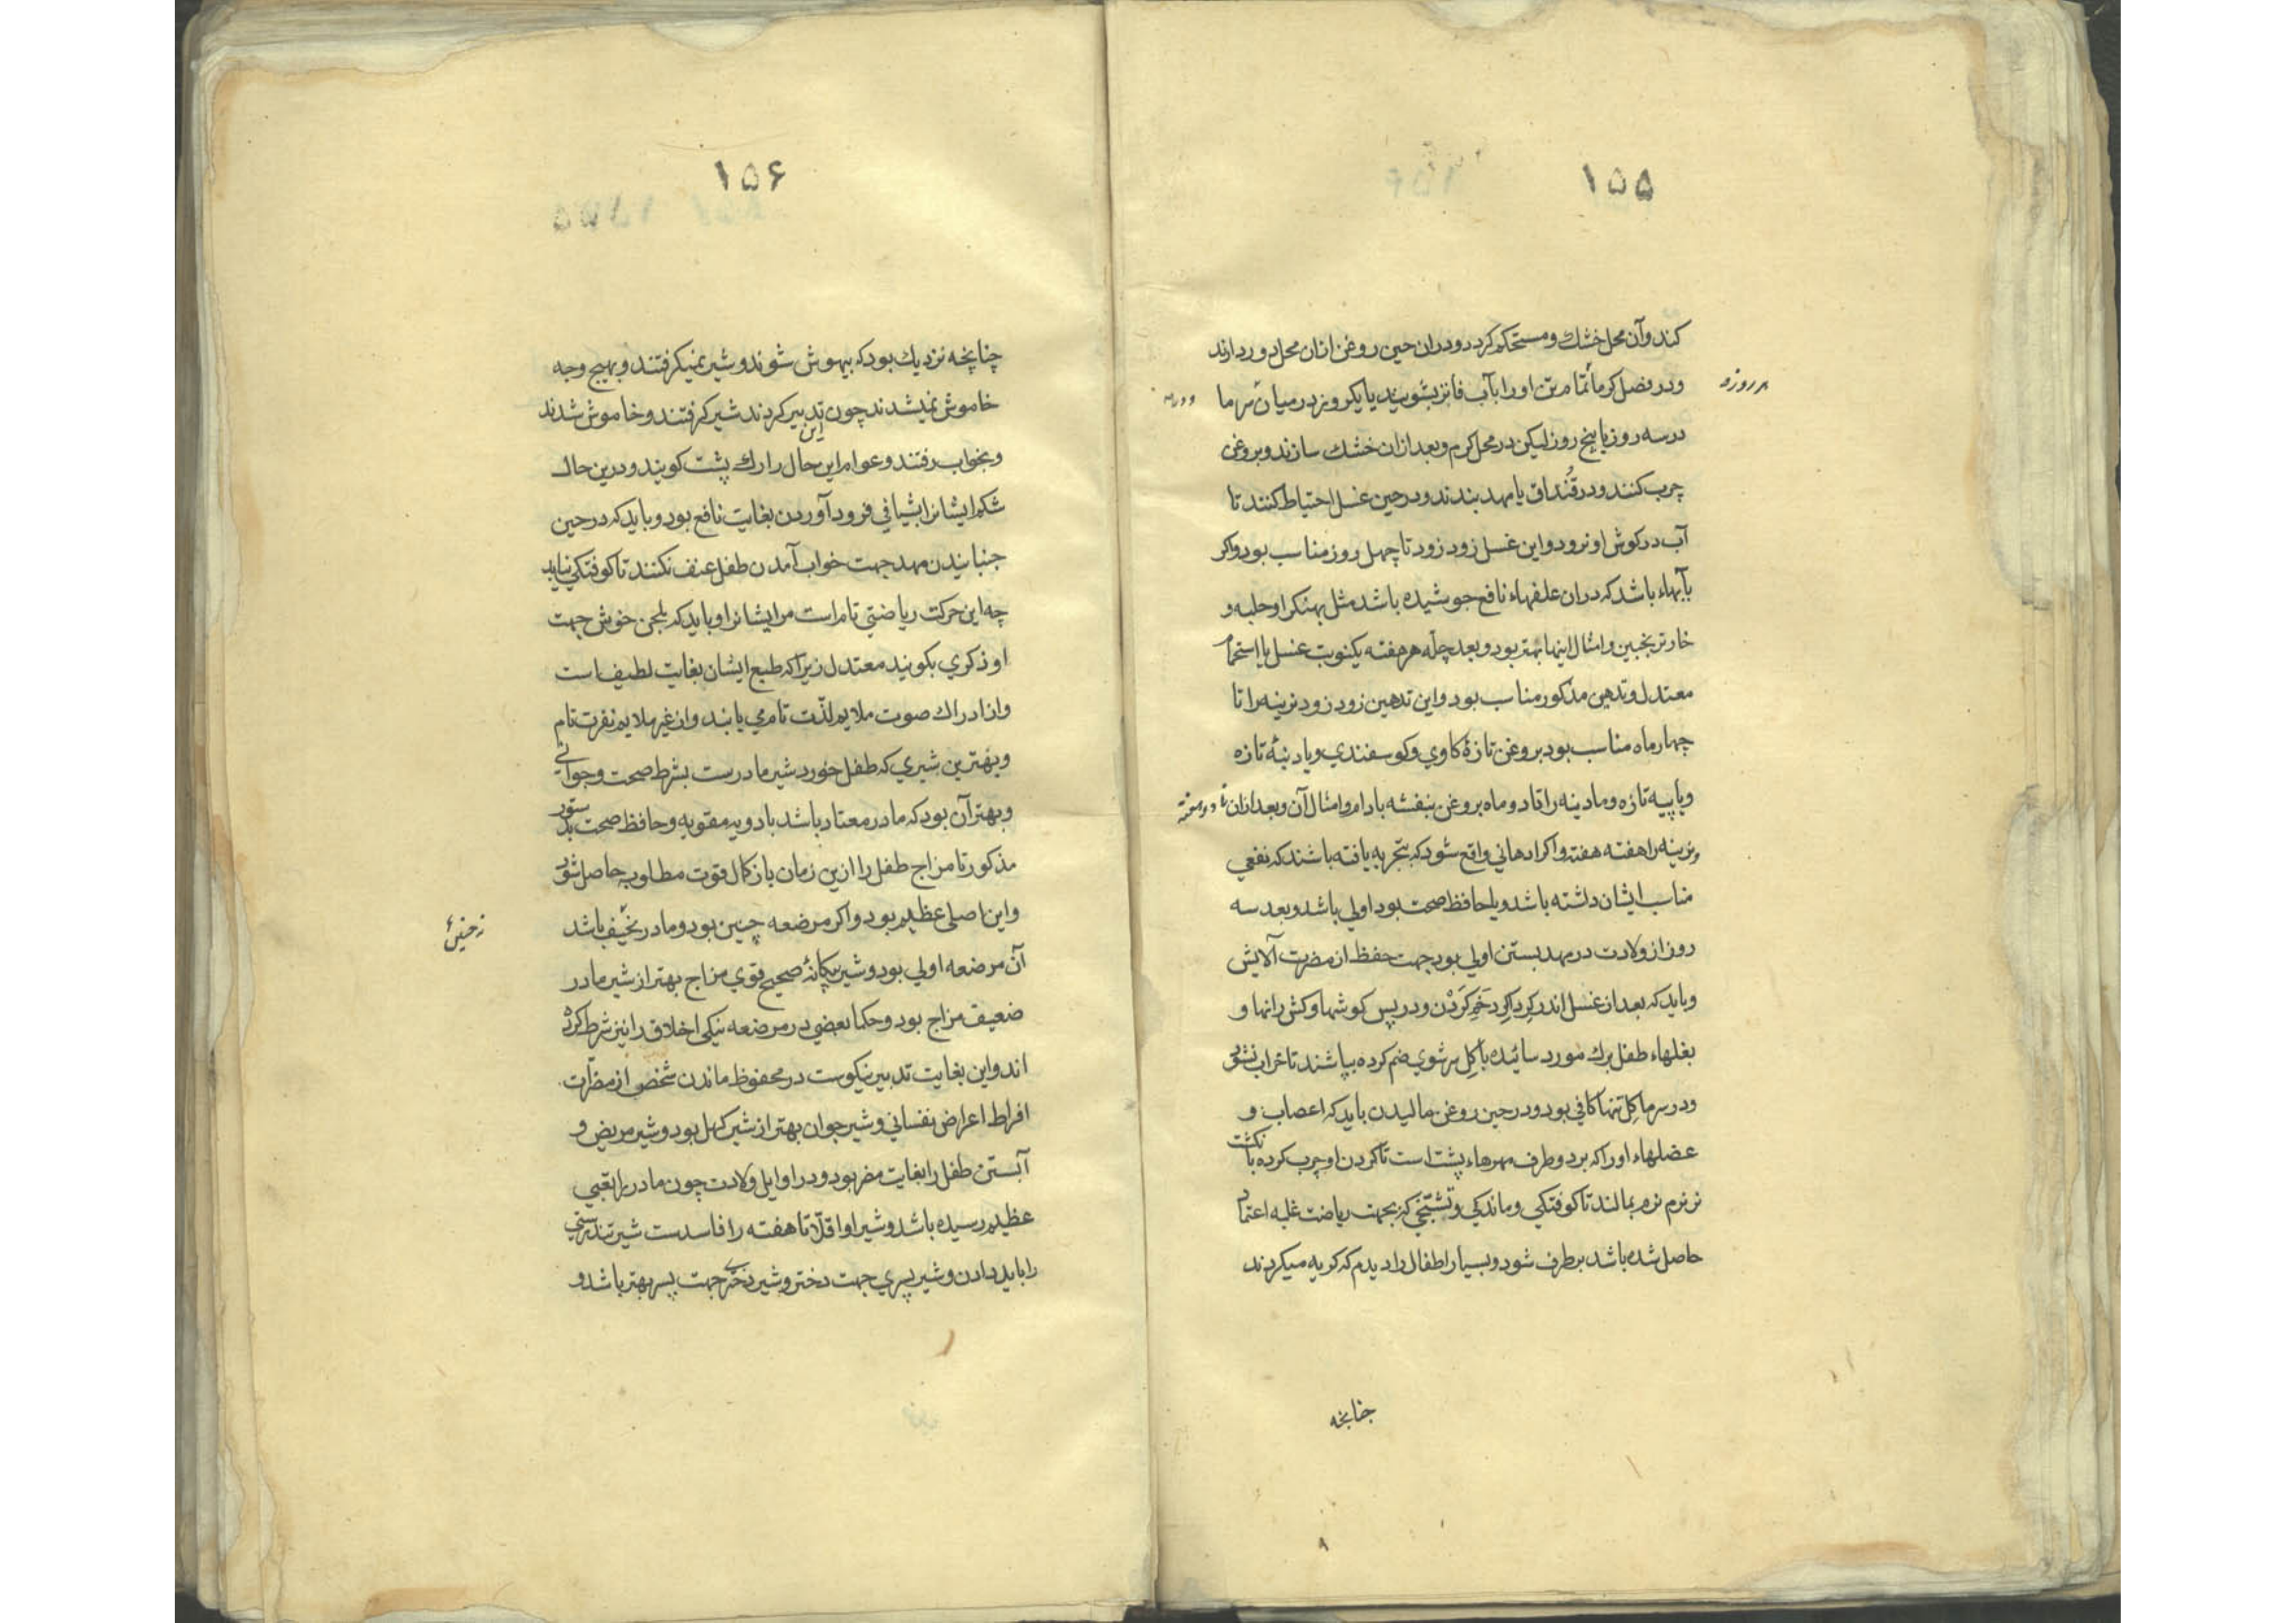 ۱۵۵
کند و آن محل خشك و مستحکم کردد و دران حین روغن ازان محل دور دارند
و در فصل کرما تمام تن او را بآب فاتر بشویند یا یکروز در میان و در سرما
هر روزه
در سه روز یا پنج روز لیکن در محل کرم و بعد ازان خشك سازند و بروغن
چرب کنند و در قنداق یا مهد بندند و در حین غسل احتیاط کنند تا
آب در کوش او نرود و این غسل زود زود تا چهل روز مناسب بود و اکر
بآبهاء باشد که دران علفهاء نافع جوشیده باشد مثل بهنکرا و حلبه و
خار ترنجبین و امثال اینها بهتر بود و بعد چله هر هفته یکنوبت غسل با استحمام
معتدل و تدهین مذکور مناسب بود و این تدهین زود زود نرینه را تا
چهار ماه مناسب بود بروغن تازۀ کاوي و کوسفندي و یا دنبۀ تازه
و یا پیه تازه و مادینه را تا دو ماه بروغن بنفشه بادام و امثال آن و بعد ازان تا دو هفته
و نرینه را هفته هفته و اکر ادهاني واقع شود که بتجربه یافته باشند که نفعي
مناسب ایشان داشته باشد و یا حافظ صحت بود اولي باشد و بعد سه
روز از ولادت در مهد بستن اولي بود جهت حفظ از مضرت آلایش
و باید که بعد از غسل اندر کرداکرد خم کردن و در پس کوشها و کش رانها و
بغلهاء طفل برك مورد سائیده با کل سرشوي ضم کرده بپاشند تا خراب نشود
و در سرما کل تنها کافي بود و در حین روغن مالیدن باید که اعصاب و
عضلهاء او را که بر دو طرف مهرهاء پشت است تا کردن او چرب کرده بانکشت
نر نرم نرم بمالند تا کوفتکي و ماندکي و تشنجي که بجهت ریاضت غلبه اعتماد
حاصل شده باشد بر طرف شود و بسیار اطفال را دیدم که کریه میکردند
چنانچه
۱۵۶
چنانچه نزدیك بود که بیهوش شوند و شیر نمیکرفتند و بهیچ وجه
خاموش نمیشدند چون این تدبیر کردند شیر کرفتند و خاموش شدند
و بخواب رفتند و عوام این حال را رك پشت کویند و درین حال
شکم ایشانرا بشیافي فرود آوردن بغایت نافع بود و باید که در حین
جنبانیدن مهد جهت خواب آمدن طفل عنف نکنند تا کوفتکي نیابد
چه این حرکت ریاضتي تام است مر ایشانرا و باید که بلحن خوش جهت
او ذکري بکویند معتدل زیرا که طبع ایشان بغایت لطیف است
و از ادراك صوت ملایم لذت تام مي یابند و از غیر ملایم نفرت تام
و بهترین شیري که طفل خورد شیر مادرست بشرط صحت و جوانی
و بهتر آن بود که مادر معتاد باشد بادویه مقویه و حافظ صحت بدستور
مذکور تا مزاج طفل را ازین زمان باز کمال قوت مطلوبه حاصل شود
و این اصلي عظیم بود و اکر مرضعه چنین بود و مادر نحیف باشد
آن مرضعه اولي بود و شیر بیکانۀ صحیح قوي مزاج بهتر از شیر مادر
ضعیف مزاج بود و حکما بعضي در مرضعه نیکی اخلاق را نیز شرط کرده
اند و این بغایت تدبیر نیکوست در محفوظ ماندن شخص از مضرات
افراط اعراض نفساني و شیر جوان بهتر از شیر کهل بود و شیر مریض و
آبستن طفل را بغایت مضر بود و در اوایل ولادت چون مادر را تعبي
عظیم رسیده باشد و شیر او اقلا تا هفته را فاسدست شیر تندرستي
را باید دادن و شیر پسري جهت دختر و شیر دختری جهت پسر بهتر باشد و